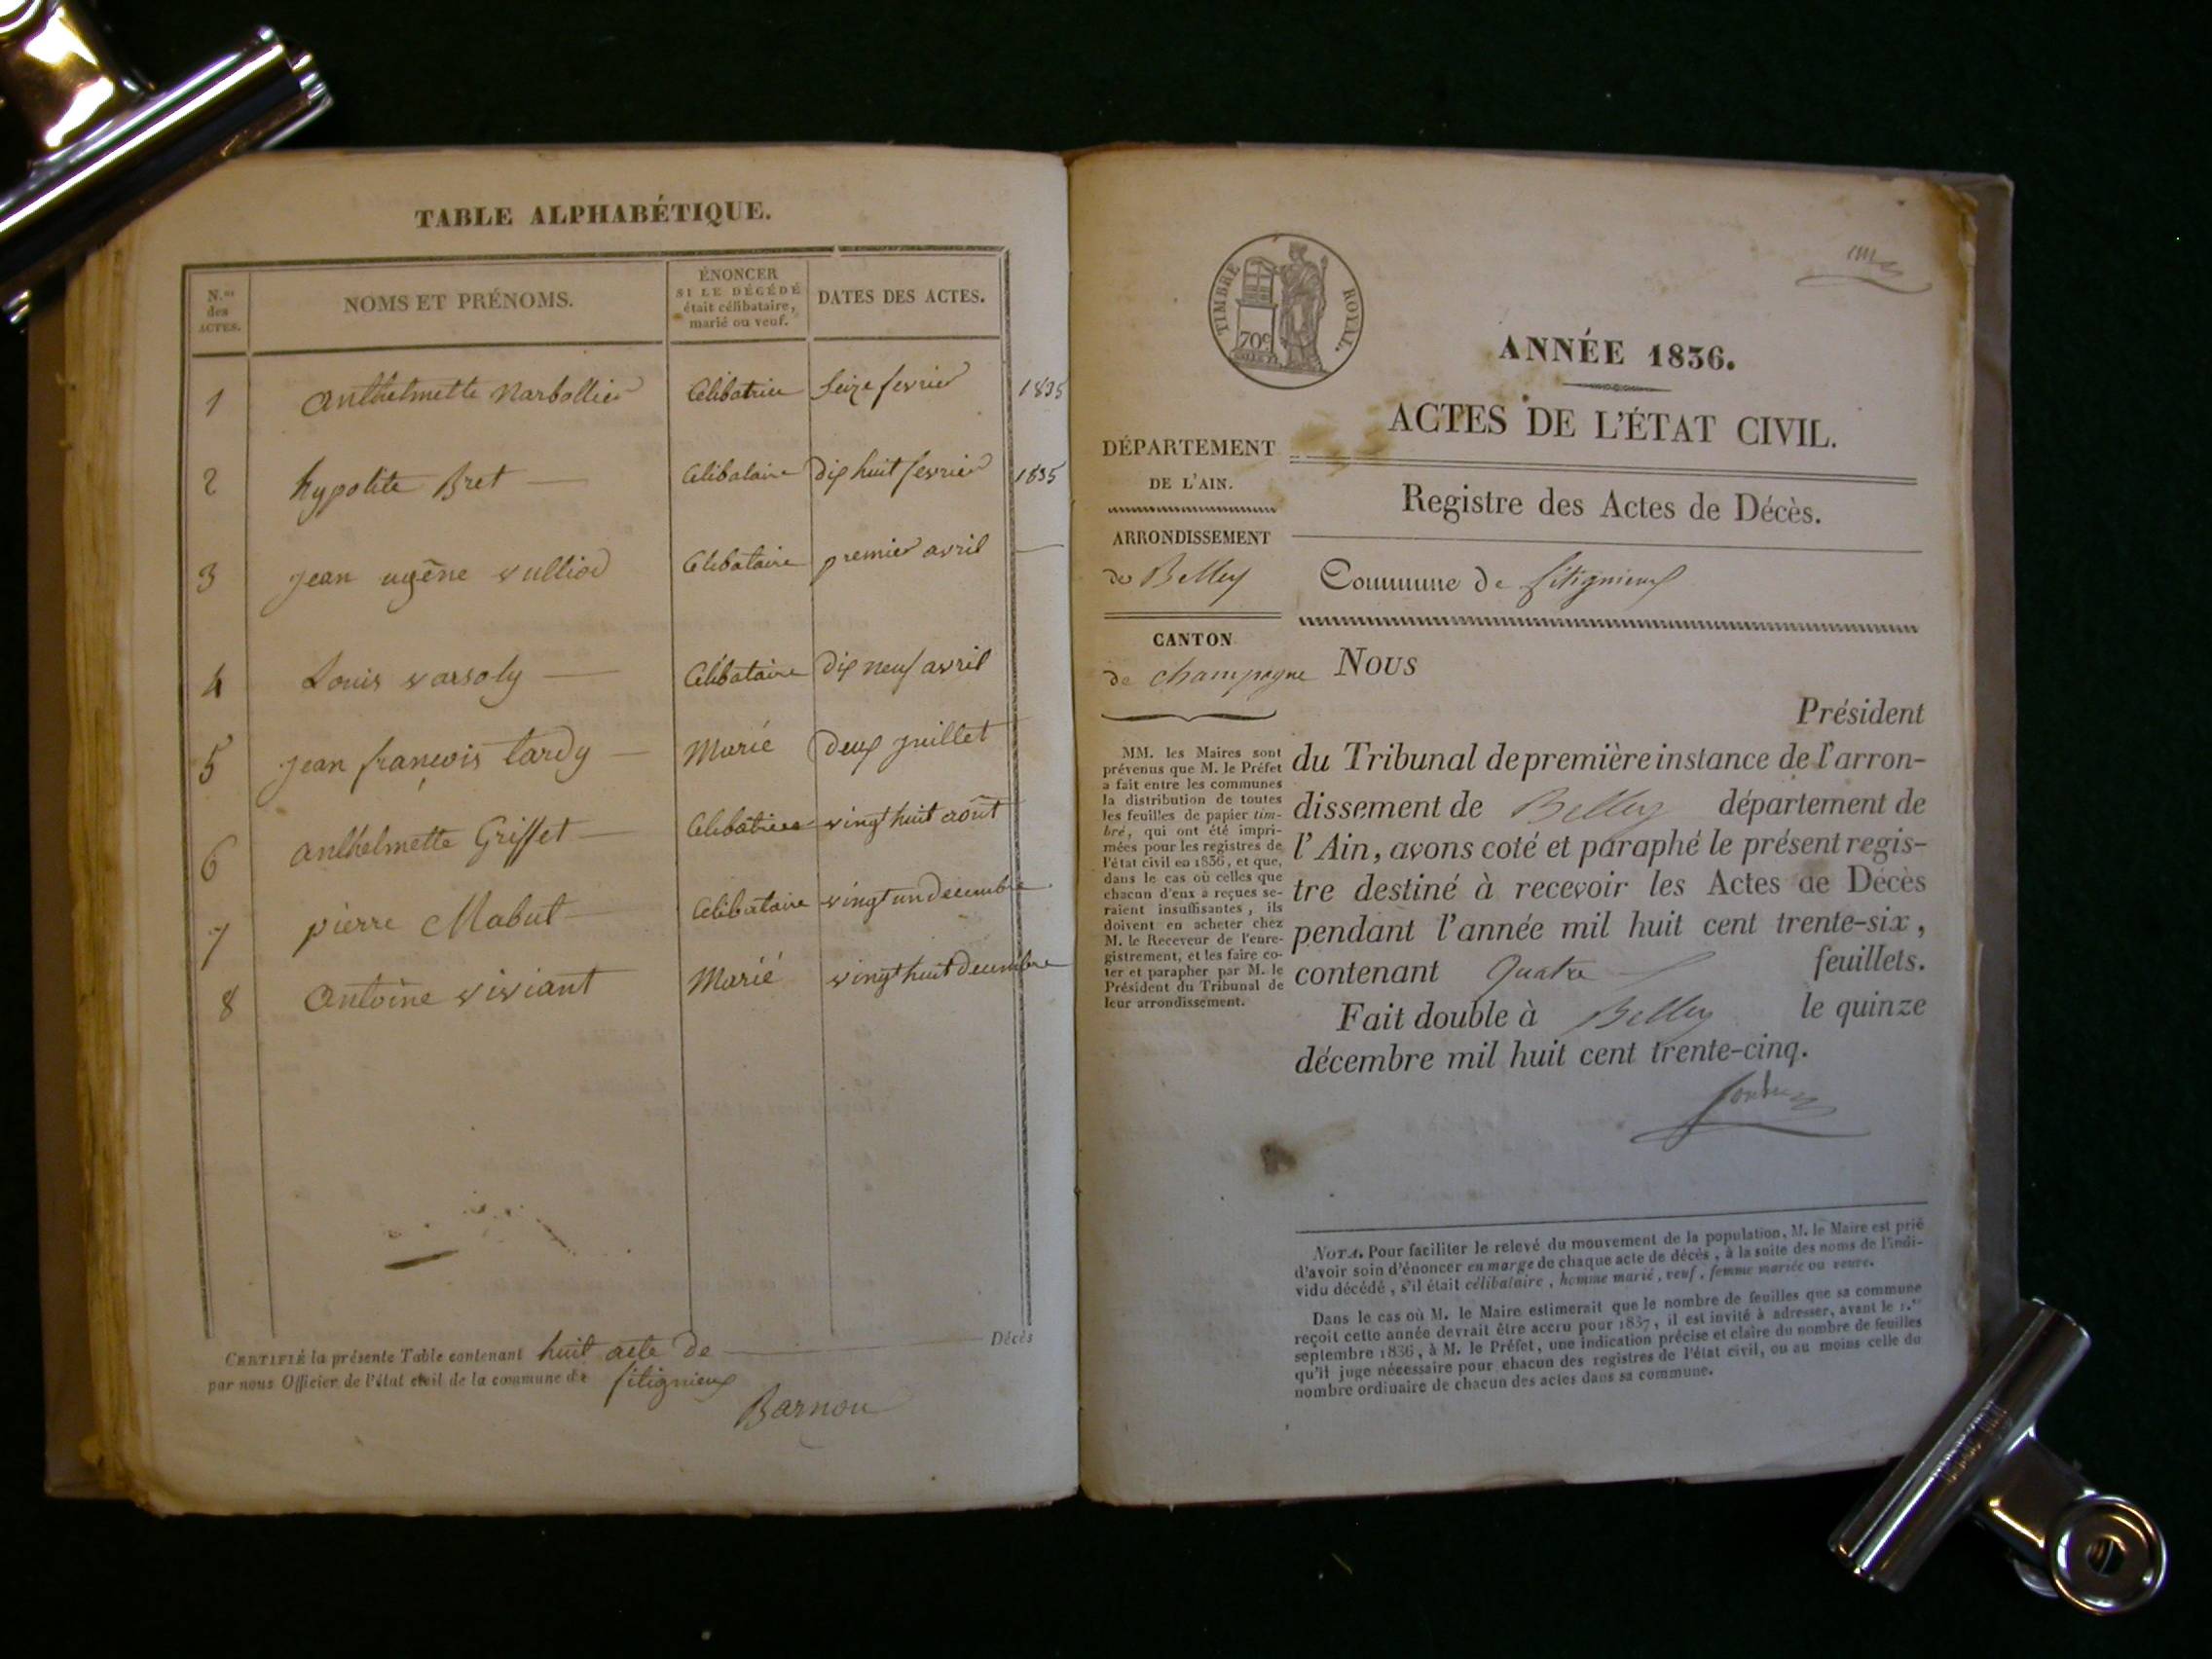 TABLE ALPHABÉTIQUE.
N.os des ACTES.
NOMS ET PRÉNOMS.
ÉNONCER SI LE DÉCÉDÉ était célibataire, marié ou veuf.
DATES DES ACTES.
1 Anthelmette Narbollier Celibatrice Seize fevrier 1835
2 hypolite Bret Celibataire dix huit fevrier 1835
3 jean eugêne vulliod Celibataire premier avril
4 Louis varsoly Célibataire dix neuf avril
5 jean françois tardy Marié deux juillet
6 anthelmette Griffet Celibatrice vingt huit août
7 pierre Mabut Celibataire vingt un decembre
8 Antoine viviant Marié vingt huit decembre
CERTIFIÉ la présente Table contenant huit acte de Décès
par nous Officier de l'état civil de la commune de fitignieux
Barnou
TIMBRE ROYAL.
70c
ANNÉE 1836.
ACTES DE L'ÉTAT CIVIL.
DÉPARTEMENT
DE L'AIN.
Registre des Actes de Décès.
ARRONDISSEMENT
de Belley
Commune de fitignieux
CANTON
de champagne
MM. les Maires sont
prévenus que M. le Préfet
a fait entre les communes
la distribution de toutes
les feuilles de papier tim-
bré, qui ont été impri-
mées pour les registres de
l'état civil en 1836, et que,
dans le cas où celles que
chacun d'eux a reçues se-
raient insuffisantes, ils
doivent en acheter chez
M. le Receveur de l'enre-
gistrement, et les faire co-
ter et parapher par M. le
Président du Tribunal de
leur arrondissement.
Nous
Président
du Tribunal de première instance de l'arron-
dissement de Belley département de
l'Ain, avons coté et paraphé le présent regis-
tre destiné à recevoir les Actes de Décès
pendant l'année mil huit cent trente-six,
contenant quatre feuillets.
Fait double à Belley le quinze
décembre mil huit cent trente-cinq.
NOTA. Pour faciliter le relevé du mouvement de la population, M. le Maire est prié
d'avoir soin d'énoncer en marge de chaque acte de décès, à la suite des noms de l'indi-
vidu décédé, s'il était célibataire, homme marié, veuf, femme mariée ou veuve.
Dans le cas où M. le Maire estimerait que le nombre de feuilles que sa commune
reçoit cette année devrait être accru pour 1837, il est invité à adresser, avant le 1.er
septembre 1836, à M. le Préfet, une indication précise et claire du nombre de feuilles
qu'il juge nécessaire pour chacun des registres de l'état civil, ou au moins celle du
nombre ordinaire de chacun des actes dans sa commune.